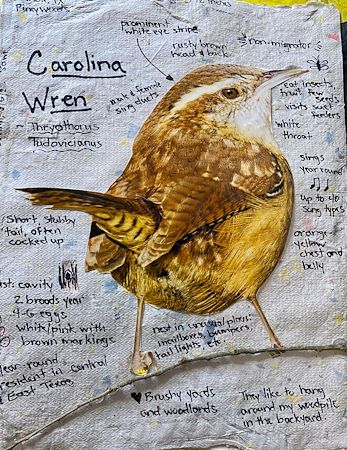 Pineywoods
12 inches
prominent
white eye stripe
rusty brown
head & back
non-migrator
Carolina
Wren
~ Thryothorus
ludovicianus
male & female
sing duets
eat insects,
fruit few
seeds
visits suet
feeders
white
throat
sings
year round
up to 40
song types
orange-
yellow
chest and
belly
Short, stubby
tail, often
cocked up
est: cavity
2 broods year
4-6 eggs
white/pink with
brown markings
year-round
resident in central
& East Texas
nest in unusual places:
mailboxes, bumpers,
tail lights, etc.
♥ Brushy yards
and woodlands
They like to hang
around my woodpile
in the backyard.